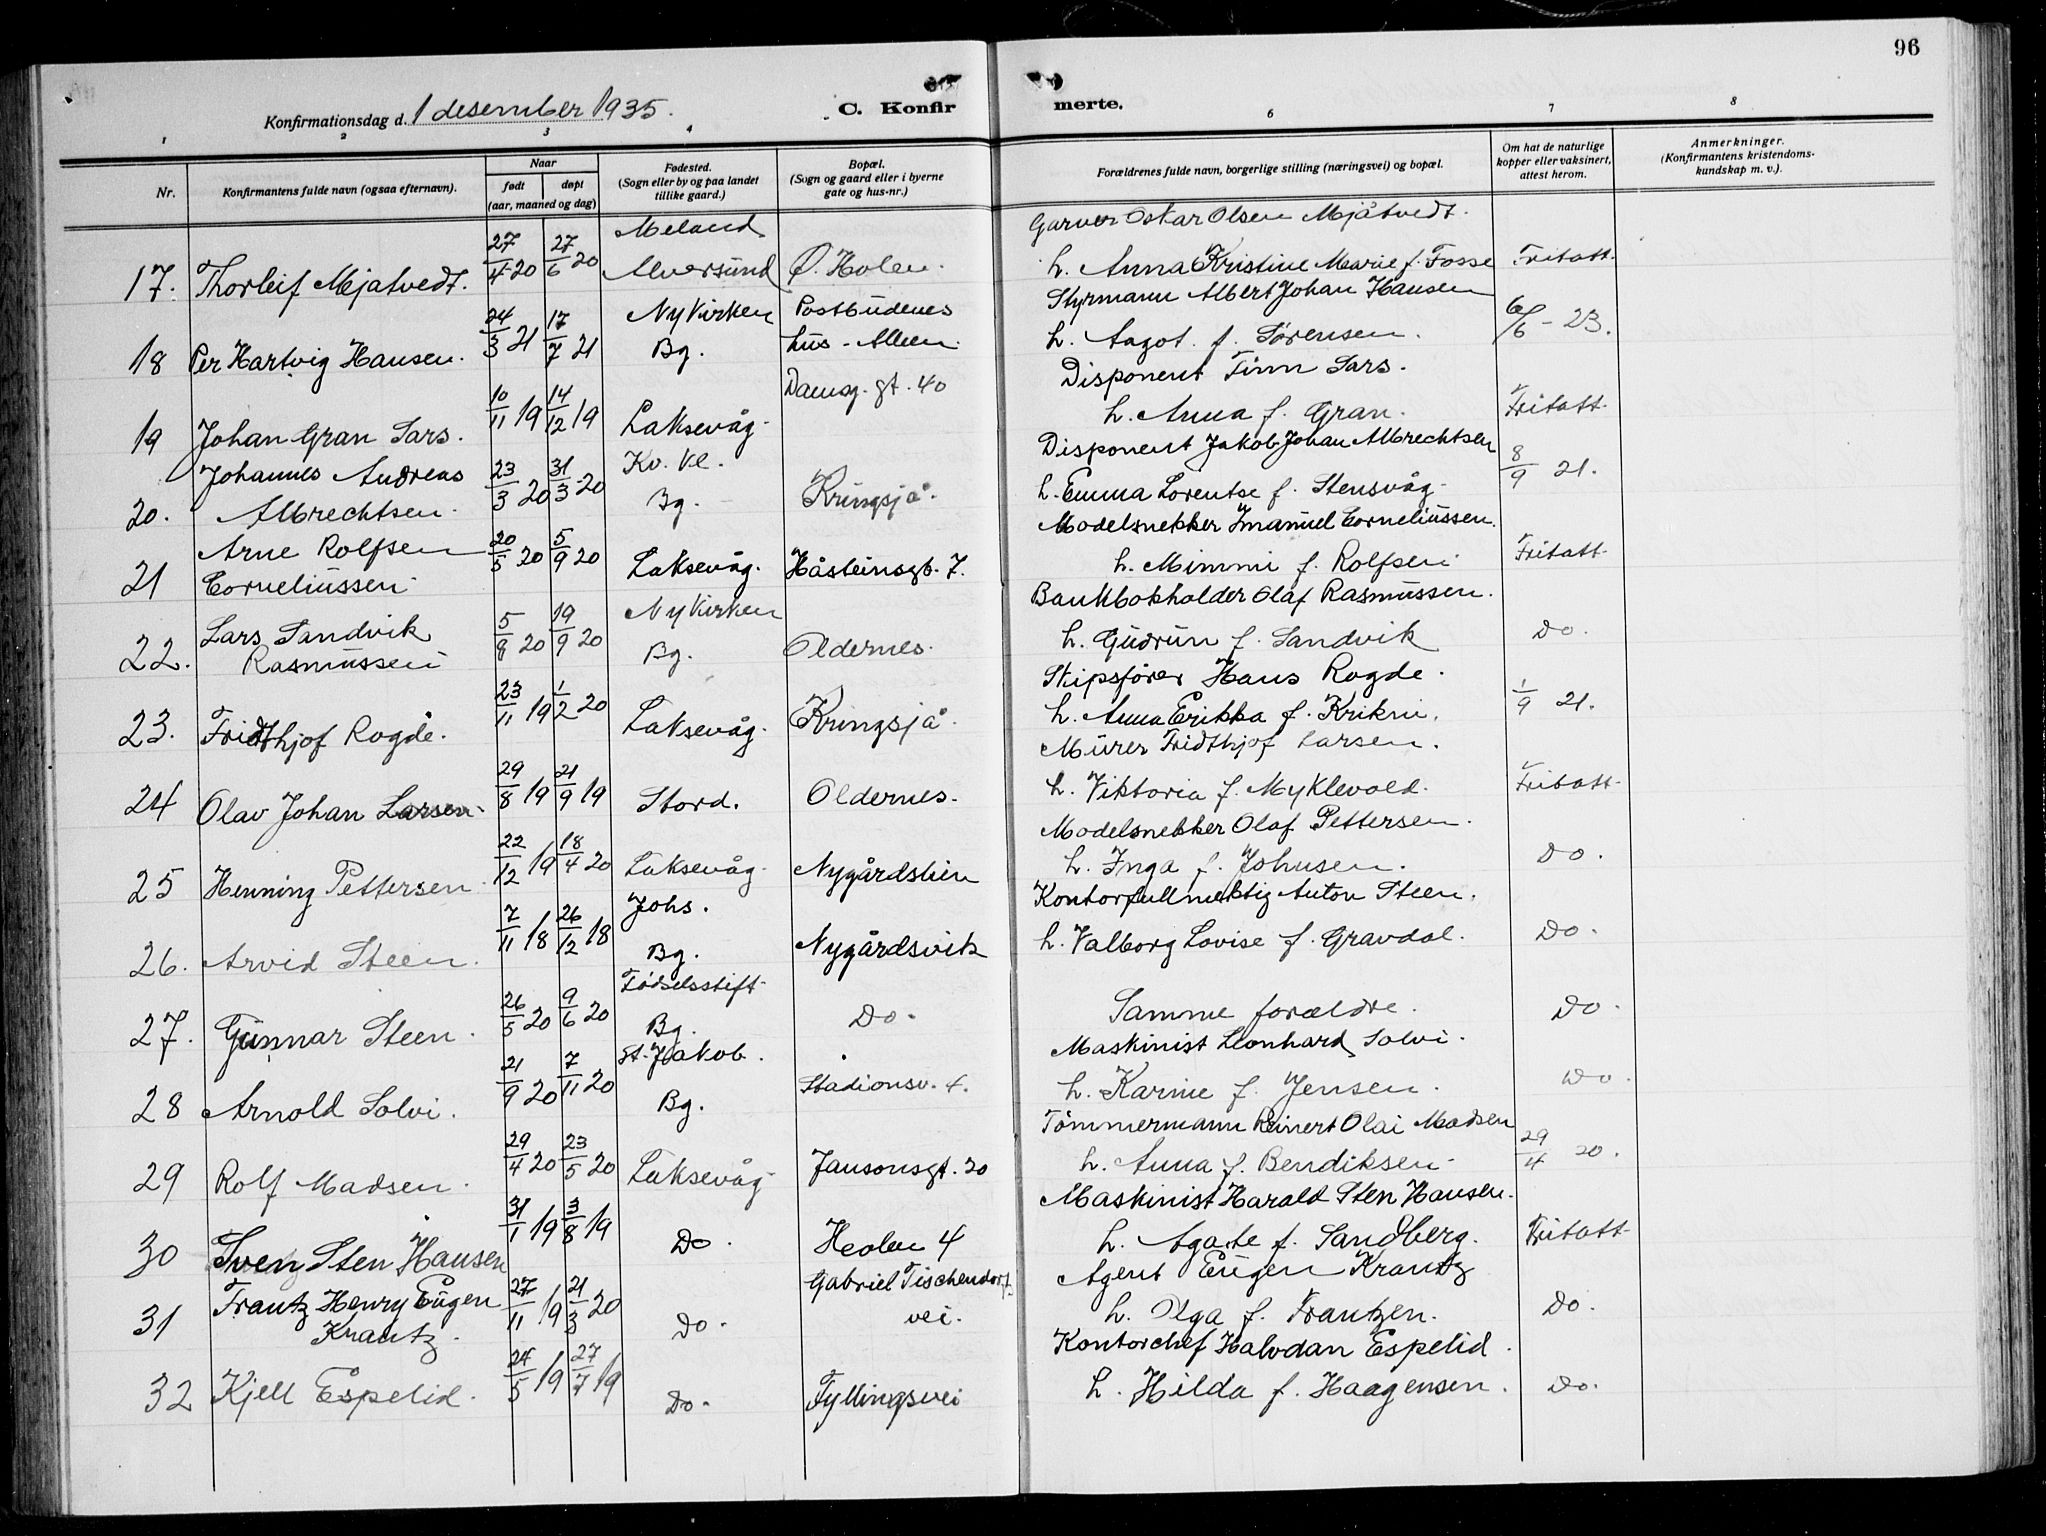 96
Konfirmationsdag d. 1 desember 1935.
C. Konfir
merte.
1 2 3 4 6 7 8
Nr.
Konfirmantens fulde navn (ogsaa efternavn).
Naar
født døpt
(aar, maaned og dag)
Fødested.
(Sogn eller by og paa landet
tillike gaard.)
Bopæl.
(Sogn og gaard eller i byerne
gate og hus-nr.)
Forældrenes fulde navn, borgerlige stilling (næringsvei) og bopæl.
Om hat de naturlige
kopper eller vaksinert,
attest herom.
Anmerkninger.
(Konfirmantens kristendoms-
kundskap m. v.).
Meland Garver Oskar Olsen Mjåtvedt.
17. Thorleif Mjatvedt. 27/4-20 27/6 20 Alversund Ø. Holen. h. Anna Kristine Marie f. Fosse Fritatt.
Nykirken Postbudenes Styrmann Albert Johan Hansen
18 Per Hartvig Hansen. 24/3 21 17/7 21 Bg. hus - Alleen. h. Aagot. f. Sørensen. 6/6 - 23.
Damsg. gt. 40 Disponent Finn Sars.
19 Johan Gran Sars. 10/11 19 14/12 19 Laksevåg. h. Anna f. Gran. Fritatt.
Johannes Andreas Kv. Kl. Disponent Jakob Johan Albrechtsen
20. Albrechtsen. 23/3 20 31/3-20 Bg. Kringsjå. h. Emma Lorentse f. Stensvåg. 8/9 21.
Arne Rolfsen Modelsnekker Imanuel Corneliussen.
21 Corneliussen. 20/5 20 5/9 20 Laksevåg. Håsteinsgt. 7. h. Mimmi f. Rolfsen Fritatt.
Lars Sandvik Nykirken Bankbokholder Olaf Rasmussen.
22. Rasmussen 5/8 20 19/9 20 Bg. Oldernes. h. Gudrun f. Sandvik Do.
Skipsfører Hans Rogde.
23. Fridthjof Rogde. 23/11 19 1/2 20 Laksevåg. Kringsjå. h. Anna Erikka f. Krikni. 1/9 21.
Murer Fridthjof Larsen.
24 Olav Johan Larsen. 29/8 19 21/9 19 Stord. Oldernes. h. Viktoria f. Myklevold. Fritatt.
Modelsnekker Olaf Pettersen.
25 Henning Pettersen. 22/12 19 18/4 20 Laksevåg. Nygårdslien h. Inga f. Johnsen. Do.
Johs. Kontorfullmektig Anton Steen.
26. Arvid Steen. 7/11 18 26/12 18 Bg. Nygårdsvik h. Valborg Lovise f. Gravdal. Do.
Fødselsstift.
27. Gunnar Steen. 26/5 20 9/6 20 Bg. Do. Samme forældre. Do.
St. Jakob. Maskinist Leonhard Solvi.
28 Arnold Solvi. 21/9 20 7/11 20 Bg. Stadionsv. 4. h. Karine f. Jensen. Do.
Tømmermann Reinert Olai Madsen
29 Rolf Madsen. 29/4 20 23/5 20 Laksevåg. Jansonsgt. 20 h. Anna f. Bendiksen. 29/4 20.
Maskinist Harald Sten Hansen.
30 Sven Sten Hansen 31/1 19 3/8 19 Do. Heolen 4 h. Agate f. Sandberg. Fritatt.
Frantz Henry Eugen Gabriel Tischendorf- Agent Eugen Krantz
31 Krantz. 27/11 19 21/3 20 Do. vei. h. Olga f. Frantzen. Do.
Kontorchef Halvdan Espelid.
32 Kjell Espelid. 24/5 19 27/7 19 Do. Fyllingsvei h. Hilda f. Haagensen. Do.